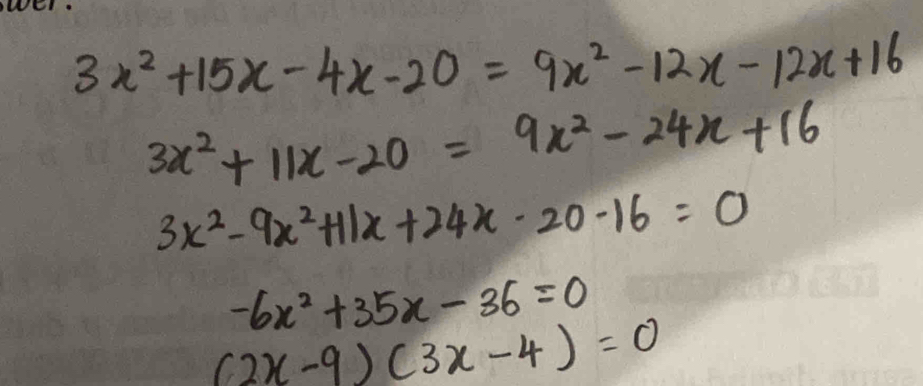 3x² + 15x - 4x - 20 = 9x² - 12x - 12x + 16
3x² + 11x - 20 = 9x² - 24x + 16
3x² - 9x² + 11x + 24x - 20 - 16 = 0
-6x² + 35x - 36 = 0
(2x - 9) (3x - 4) = 0